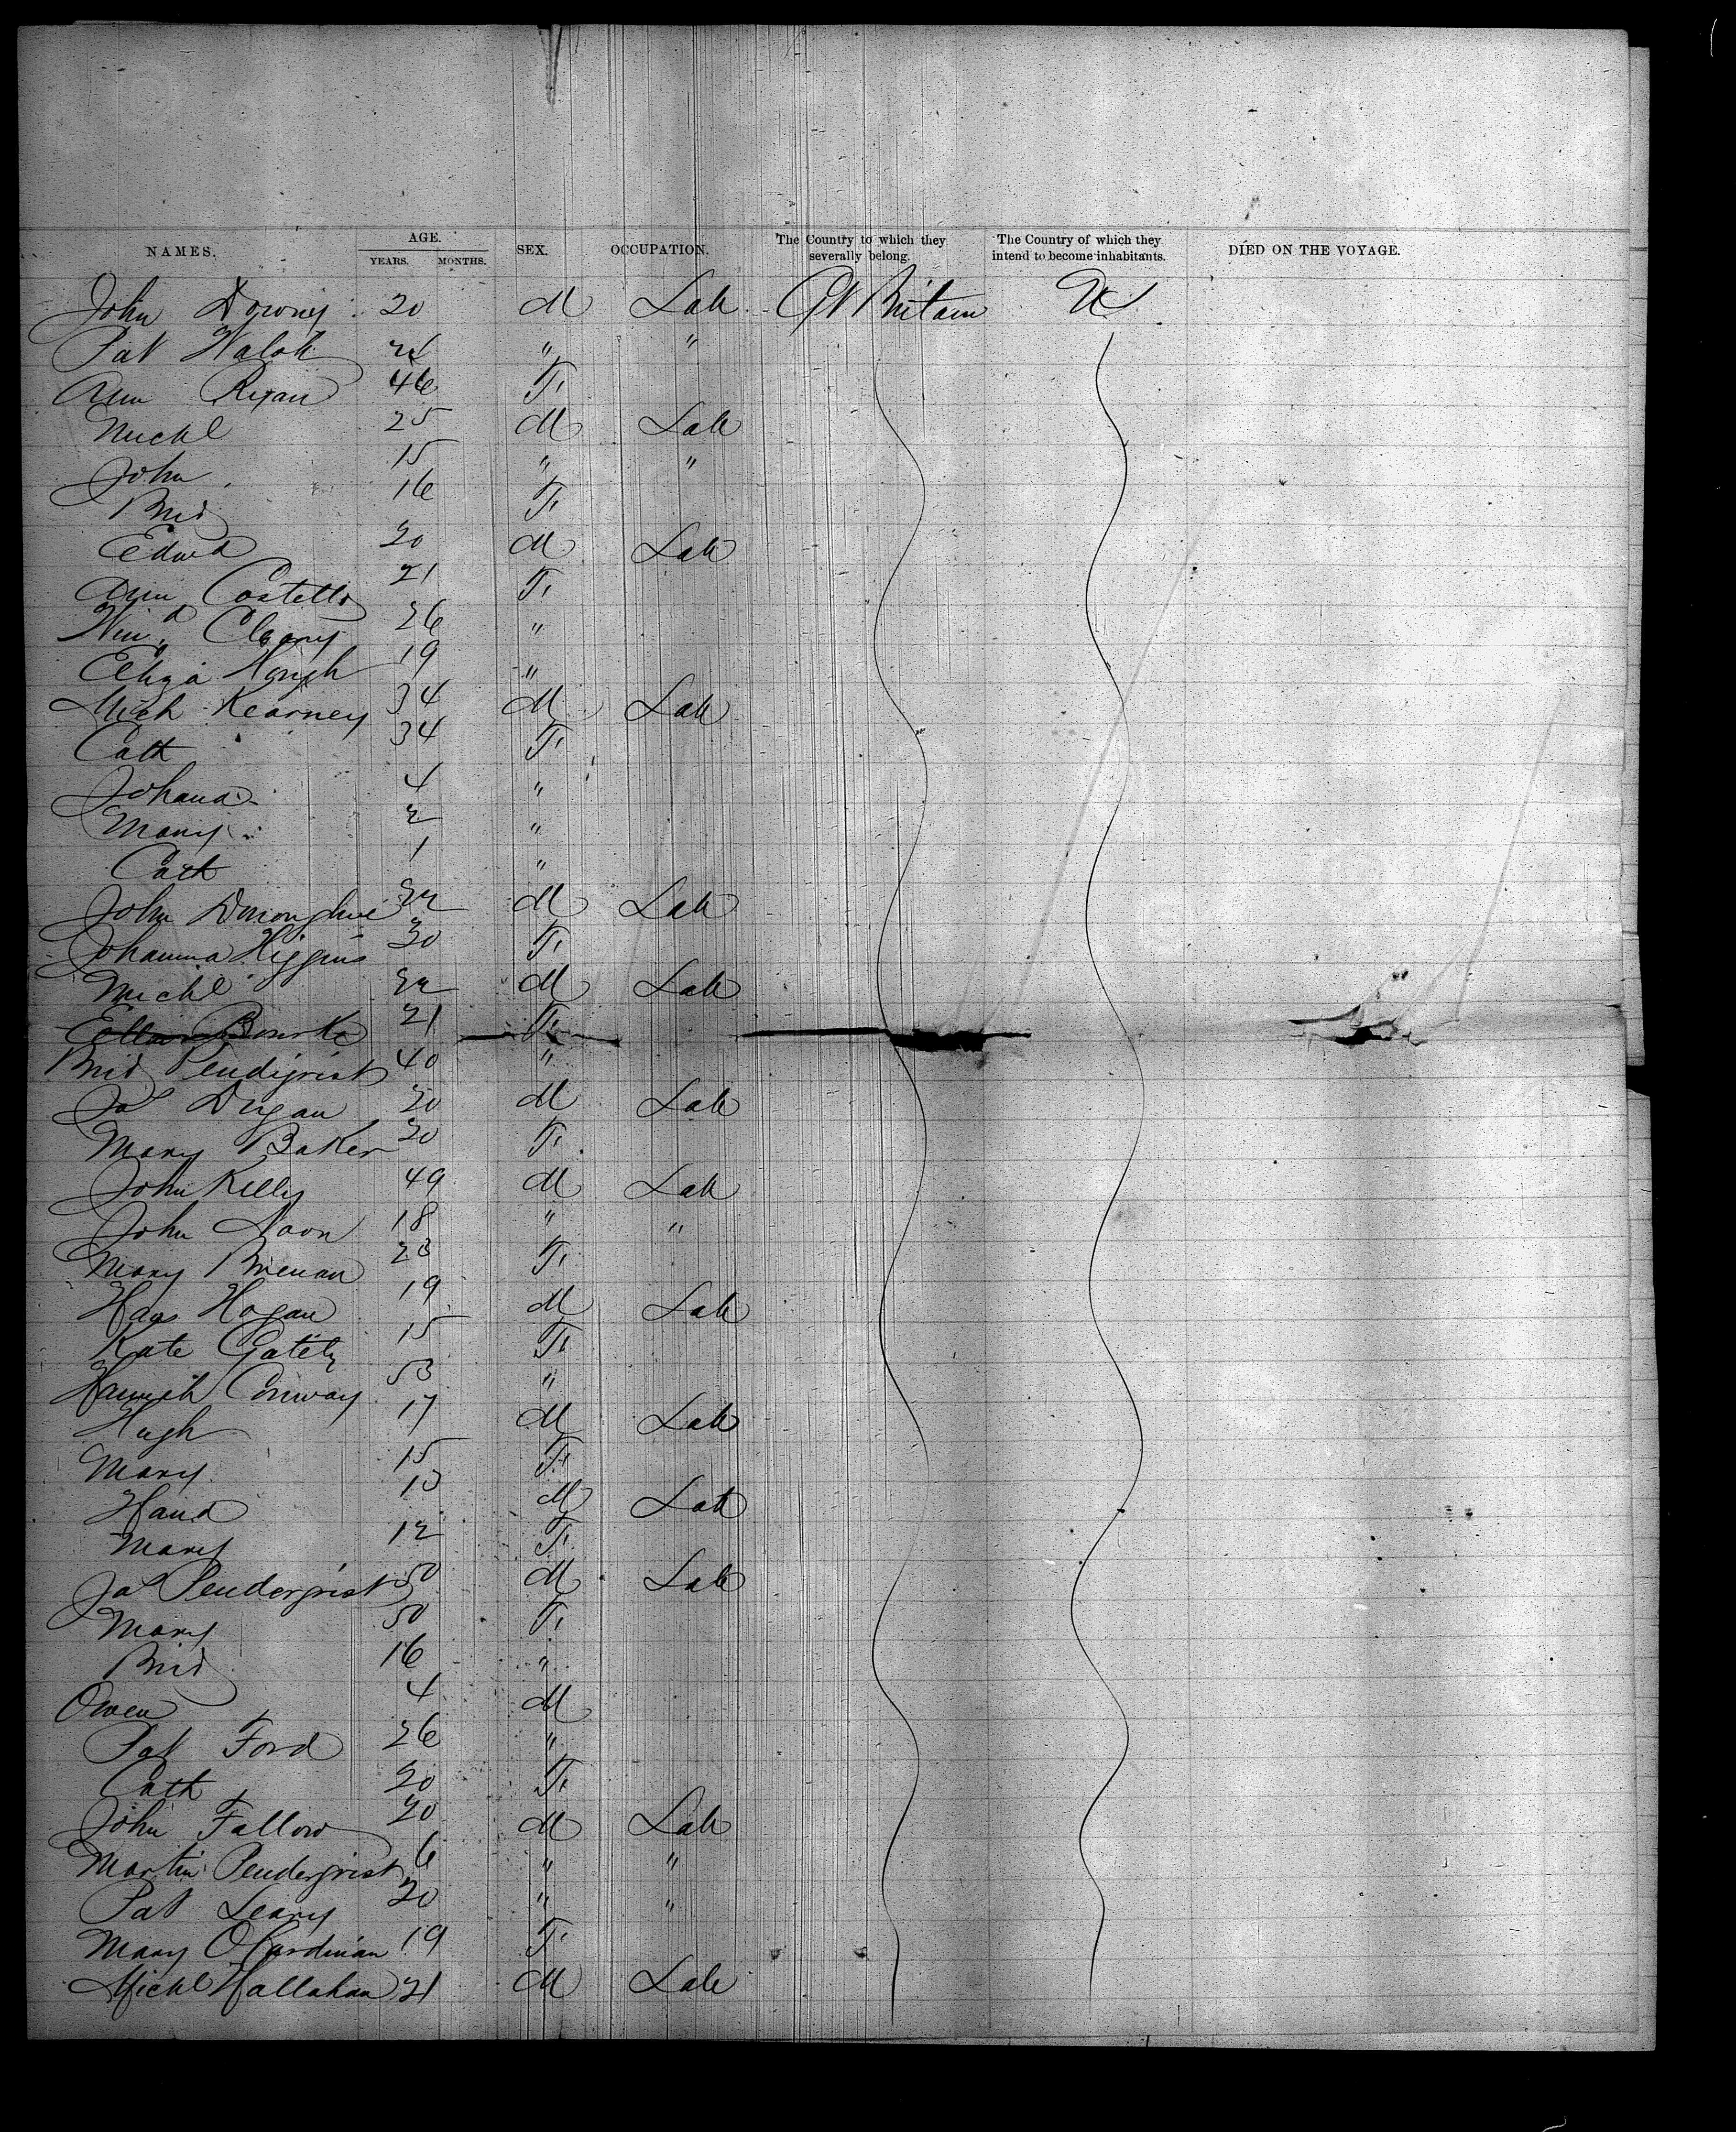 NAMES. AGE. YEARS. MONTHS. SEX. OCCUPATION. The Country to which they severally belong. The Country of which they intend to become inhabitants. DIED ON THE VOYAGE.
John Downy 20 M Lab Gt Britain US
Pat 24 " "
Ann Ryan 46 F
Michl 25 M Lab
John 15 " "
Brid 16 F
Edwd 20 M Lab
Ann Costello 21 F
Win'd Cleary 26 "
Eliza Hough 19 "
Mich Kearney 34 M Lab
Cath 34 F
Johana 4 "
Mary 2 "
Cath 1 "
John Donoughue 22 M Lab
Johanna Higgins 30 F
Michl 22 M Lab
Ellen Bourke 21 F
Brid Pendigrist 40 "
Jas Dugan 20 M Lab
Mary Baker 20 F
John Kelly 49 M Lab
John Noon 18 " "
Mary Brenan 23 F
Hogan 19 M Lab
Kate Gately 15 F
Hannah Conway 53 "
Hugh 17 M Lab
Mary 15 F
13 M Lab
Mary 12 F
Jas Pendergrist 50 M Lab
Mary 50 F
Brid 16 "
Owen 4 M
Pat Ford 26 "
Cath 20 F
John Fallow 20 M Lab
Martin Pendergrist 6 " "
Pat Leary 20 " "
Mary 19 F
Michl Hallahan 21 M Lab